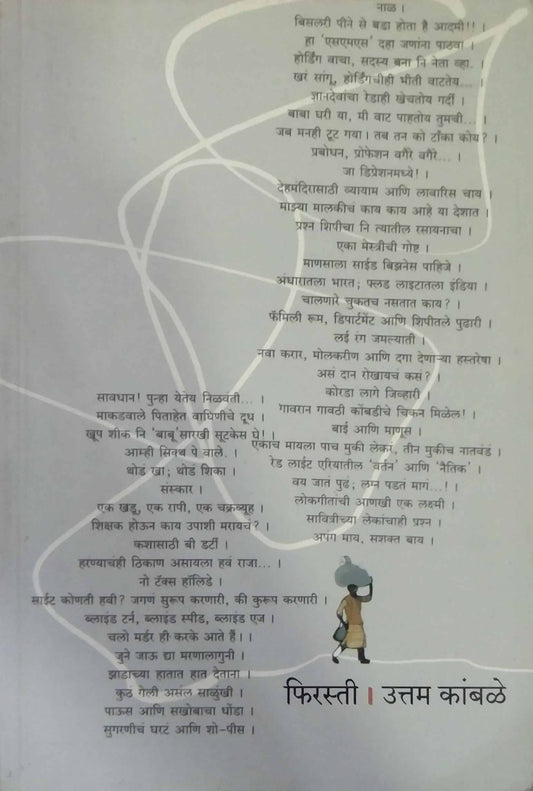 नाळ ।
बिसलरी पीने से बडा होता है आदमी!! ।
हा 'एसएमएस' दहा जणांना पाठवा ।
होर्डिंग वाचा, सदस्य बना नि नेता व्हा. ।
खरं सांगू, होर्डिंगचीही भीती वाटतेय... ।
ज्ञानदेवाचा रेडाही खेचतोय गर्दी ।
बाबा घरी या, मी वाट पाहतोय तुमची... ।
जब मनही टूट गया। तब तन को टाँका कोय? ।
प्रबोधन, प्रोफेशन वगैरे वगैरे... ।
जा डिप्रेशनमध्ये! ।
देहमंदिरासाठी व्यायाम आणि लावारिस चाय ।
माझ्या मालकीचं काय काय आहे या देशात ।
प्रश्न शिपीचा नि त्यातील रसायनाचा ।
एका मेस्त्रीची गोष्ट ।
माणसाला साईड बिझनेस पाहिजे ।
अंधारातला भारत; फ्लड लाइटातला इंडिया ।
चालणारे चुकतच नसतात काय? ।
फॅमिली रूम, डिपार्टमेंट आणि शिपीतले पुढारी ।
लई रंग जमल्याती ।
नवा करार, मोलकरीण आणि दगा देणाऱ्या हस्तरेषा ।
असं दान रोखायचं कसं? ।
कोरडा लागे जिव्हारी ।
गावरान गावठी कोंबडीचे चिकन मिळेल! ।
बाई आणि माणूस ।
एकाच मायला पाच मुकी लेकरं, तीन मुकीच नातवंडं ।
रेड लाईट एरियातील 'वर्तन' आणि 'नैतिक' ।
वय जातं पुढं; लग्न पडतं मागं...! ।
लोकगीतांची आणखी एक लक्ष्मी ।
सावित्रीच्या लेकांचाही प्रश्न ।
अपंग माय, सशक्त बाय ।
सावधान! पुन्हा येतेय निळवंती... ।
माकडवाले पिताहेत वाघिणीचे दूध ।
खूप शीक नि 'बाबू'सारखी सूटकेस घे! ।
आम्ही सिक्थ पे वाले. ।
थोडं खा; थोडं शिका ।
संस्कार ।
एक खडू, एक रापी, एक चक्रव्यूह ।
शिक्षक होऊन काय उपाशी मरायचं? ।
कशासाठी बी डर्टी ।
हरण्याचंही ठिकाण असायला हवं राजा... ।
नो टॅक्स हॉलिडे ।
साईट कोणती हवी? जगणं सुरूप करणारी, की कुरूप करणारी ।
ब्लाइंड टर्न, ब्लाइंड स्पीड, ब्लाइंड एज ।
चलो मर्डर ही करके आते हैं।।
जुने जाऊ द्या मरणालागुनी ।
झाडाच्या हातात हात देताना ।
कुठं गेली असंल साळुंखी ।
पाऊस आणि सखोबाचा धोंडा ।
सुगरणीचं घरटं आणि शो-पीस ।
फिरस्ती । उत्तम कांबळे